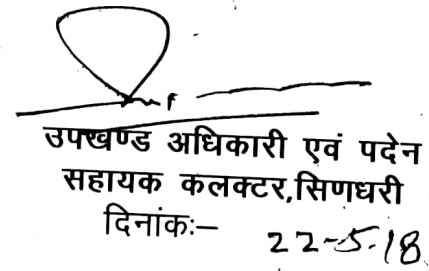 उपखण्ड अधिकारी एवं पदेन
सहायक कलक्टर,सिणधरी
दिनांकः– 22-5-18